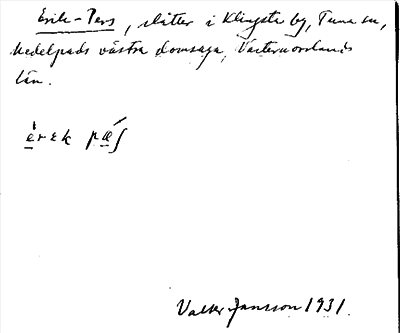 Erik-Pers, slåtter i Klingsta by, Tuna sn,
Medelpads västra domsaga, Västernorrlands
län.
èrek pǽʃ
Valter Jansson 1931.